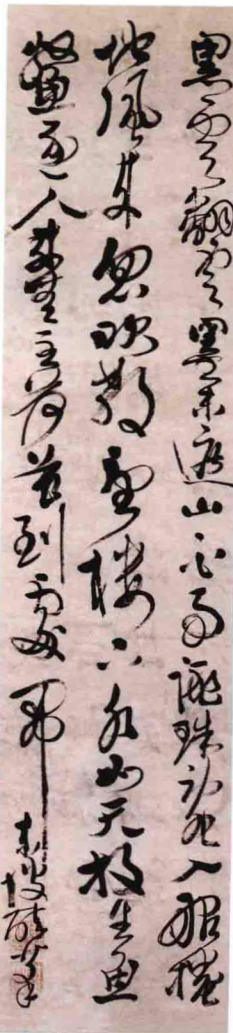 黑雲翻墨未遮山白雨跳珠亂入船捲
地風來忽吹散望樓下水如天放生魚
鱉逐人來無主荷花到處開
東坡醉筆